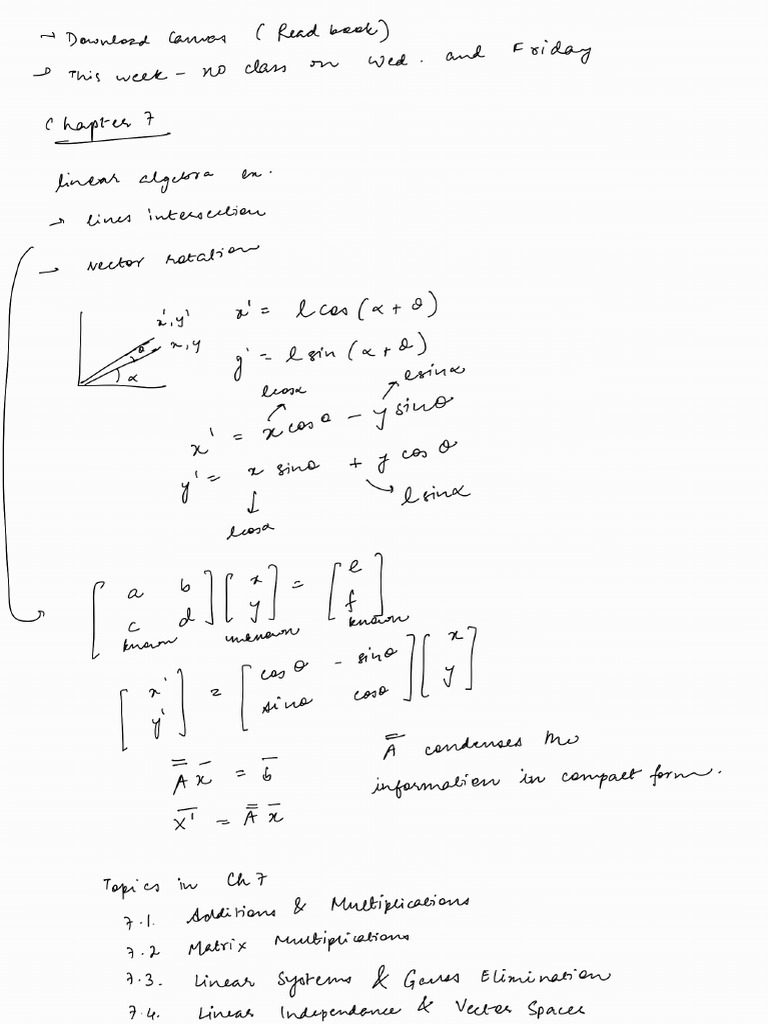 → Download Canvas (Read book)
→ This week - no class on Wed. and Friday
Chapter 7
linear algebra ex.
→ lines intersection
→ vector rotation
x', y'
x, y
θ
α
x' = l cos (α + θ)
y' = l sin (α + θ)
l cosα
l sinα
x' = x cos θ - y sin θ
y' = x sin θ + y cos θ
l sinα
l cosα
[ a b ] [ x ] = [ e ]
[ c d ] [ y ] [ f ]
known unknown known
[ x' ] = [ cos θ - sin θ ] [ x ]
[ y' ] [ sin θ cos θ ] [ y ]
A̿ x̄ = b̄
A̿ condenses the
information in compact form.
X̄' = A̿ x̄
Topics in Ch 7
7.1. Additions & Multiplications
7.2 Matrix Multiplications
7.3. Linear Systems & Gauss Elimination
7.4. Linear Independence & Vector Spaces